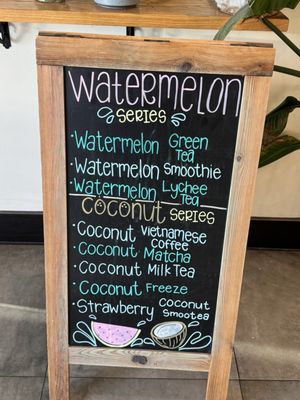 Watermelon
Series
· Watermelon Green Tea
· Watermelon Smoothie
· Watermelon Lychee Tea
Coconut Series
· Coconut Vietnamese Coffee
· Coconut Matcha
· Coconut Milk Tea
· Coconut Freeze
· Strawberry Coconut Smootea